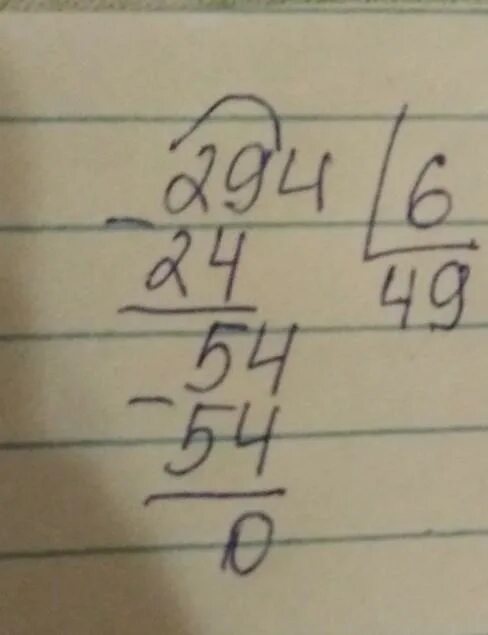 294 | 6
- 24 49
54
- 54
0